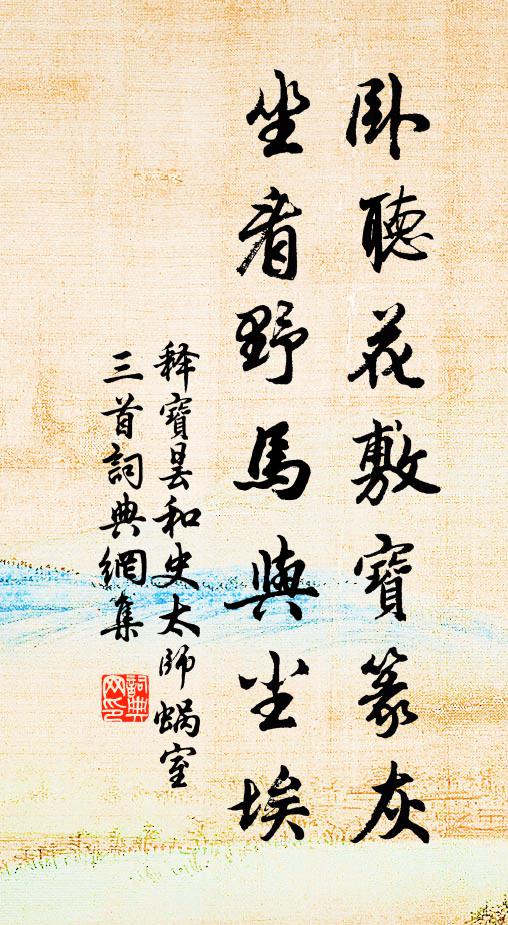 卧聽花敷寶篆灰
坐看野馬與尘埃
释寶昙和史太師蜗室
三首詞典網集
詞典
网印